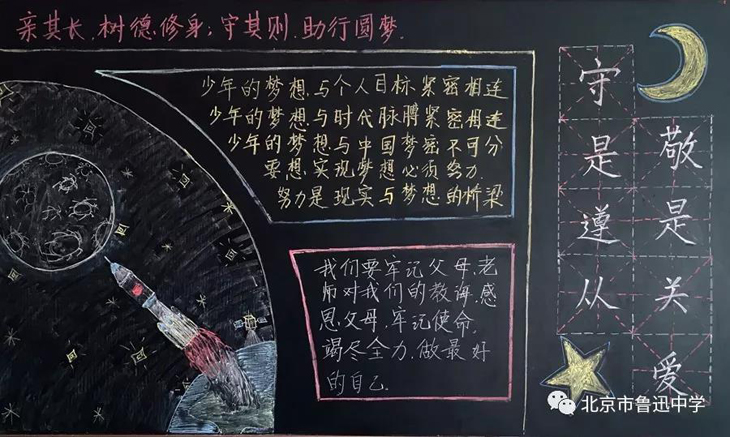 亲其长,树德修身;守其则,助行圆梦.
少年的梦想,与个人目标紧密相连
少年的梦想,与时代脉膊紧密相连
少年的梦想,与中国梦密不可分
要想实现梦想必须努力.
努力是现实与梦想的桥梁
我们要牢记父母,老
师对我们的教诲,感
恩父母,牢记使命,
竭尽全力,做最好
的自己
守是遵从
敬是关爱
北京市鲁迅中学